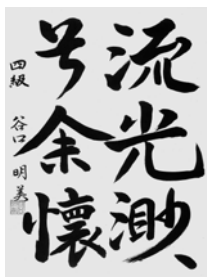 流光渺、
兮余懷
四級 谷口明美